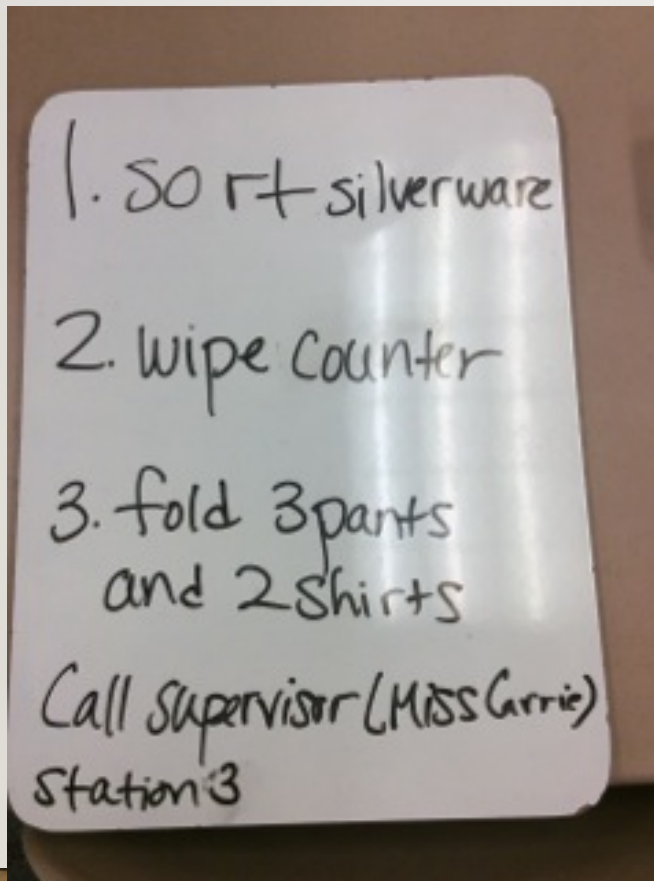 1. sort silverware
2. wipe counter
3. fold 3 pants
and 2 shirts
Call supervisor (Miss Carrie)
Station 3